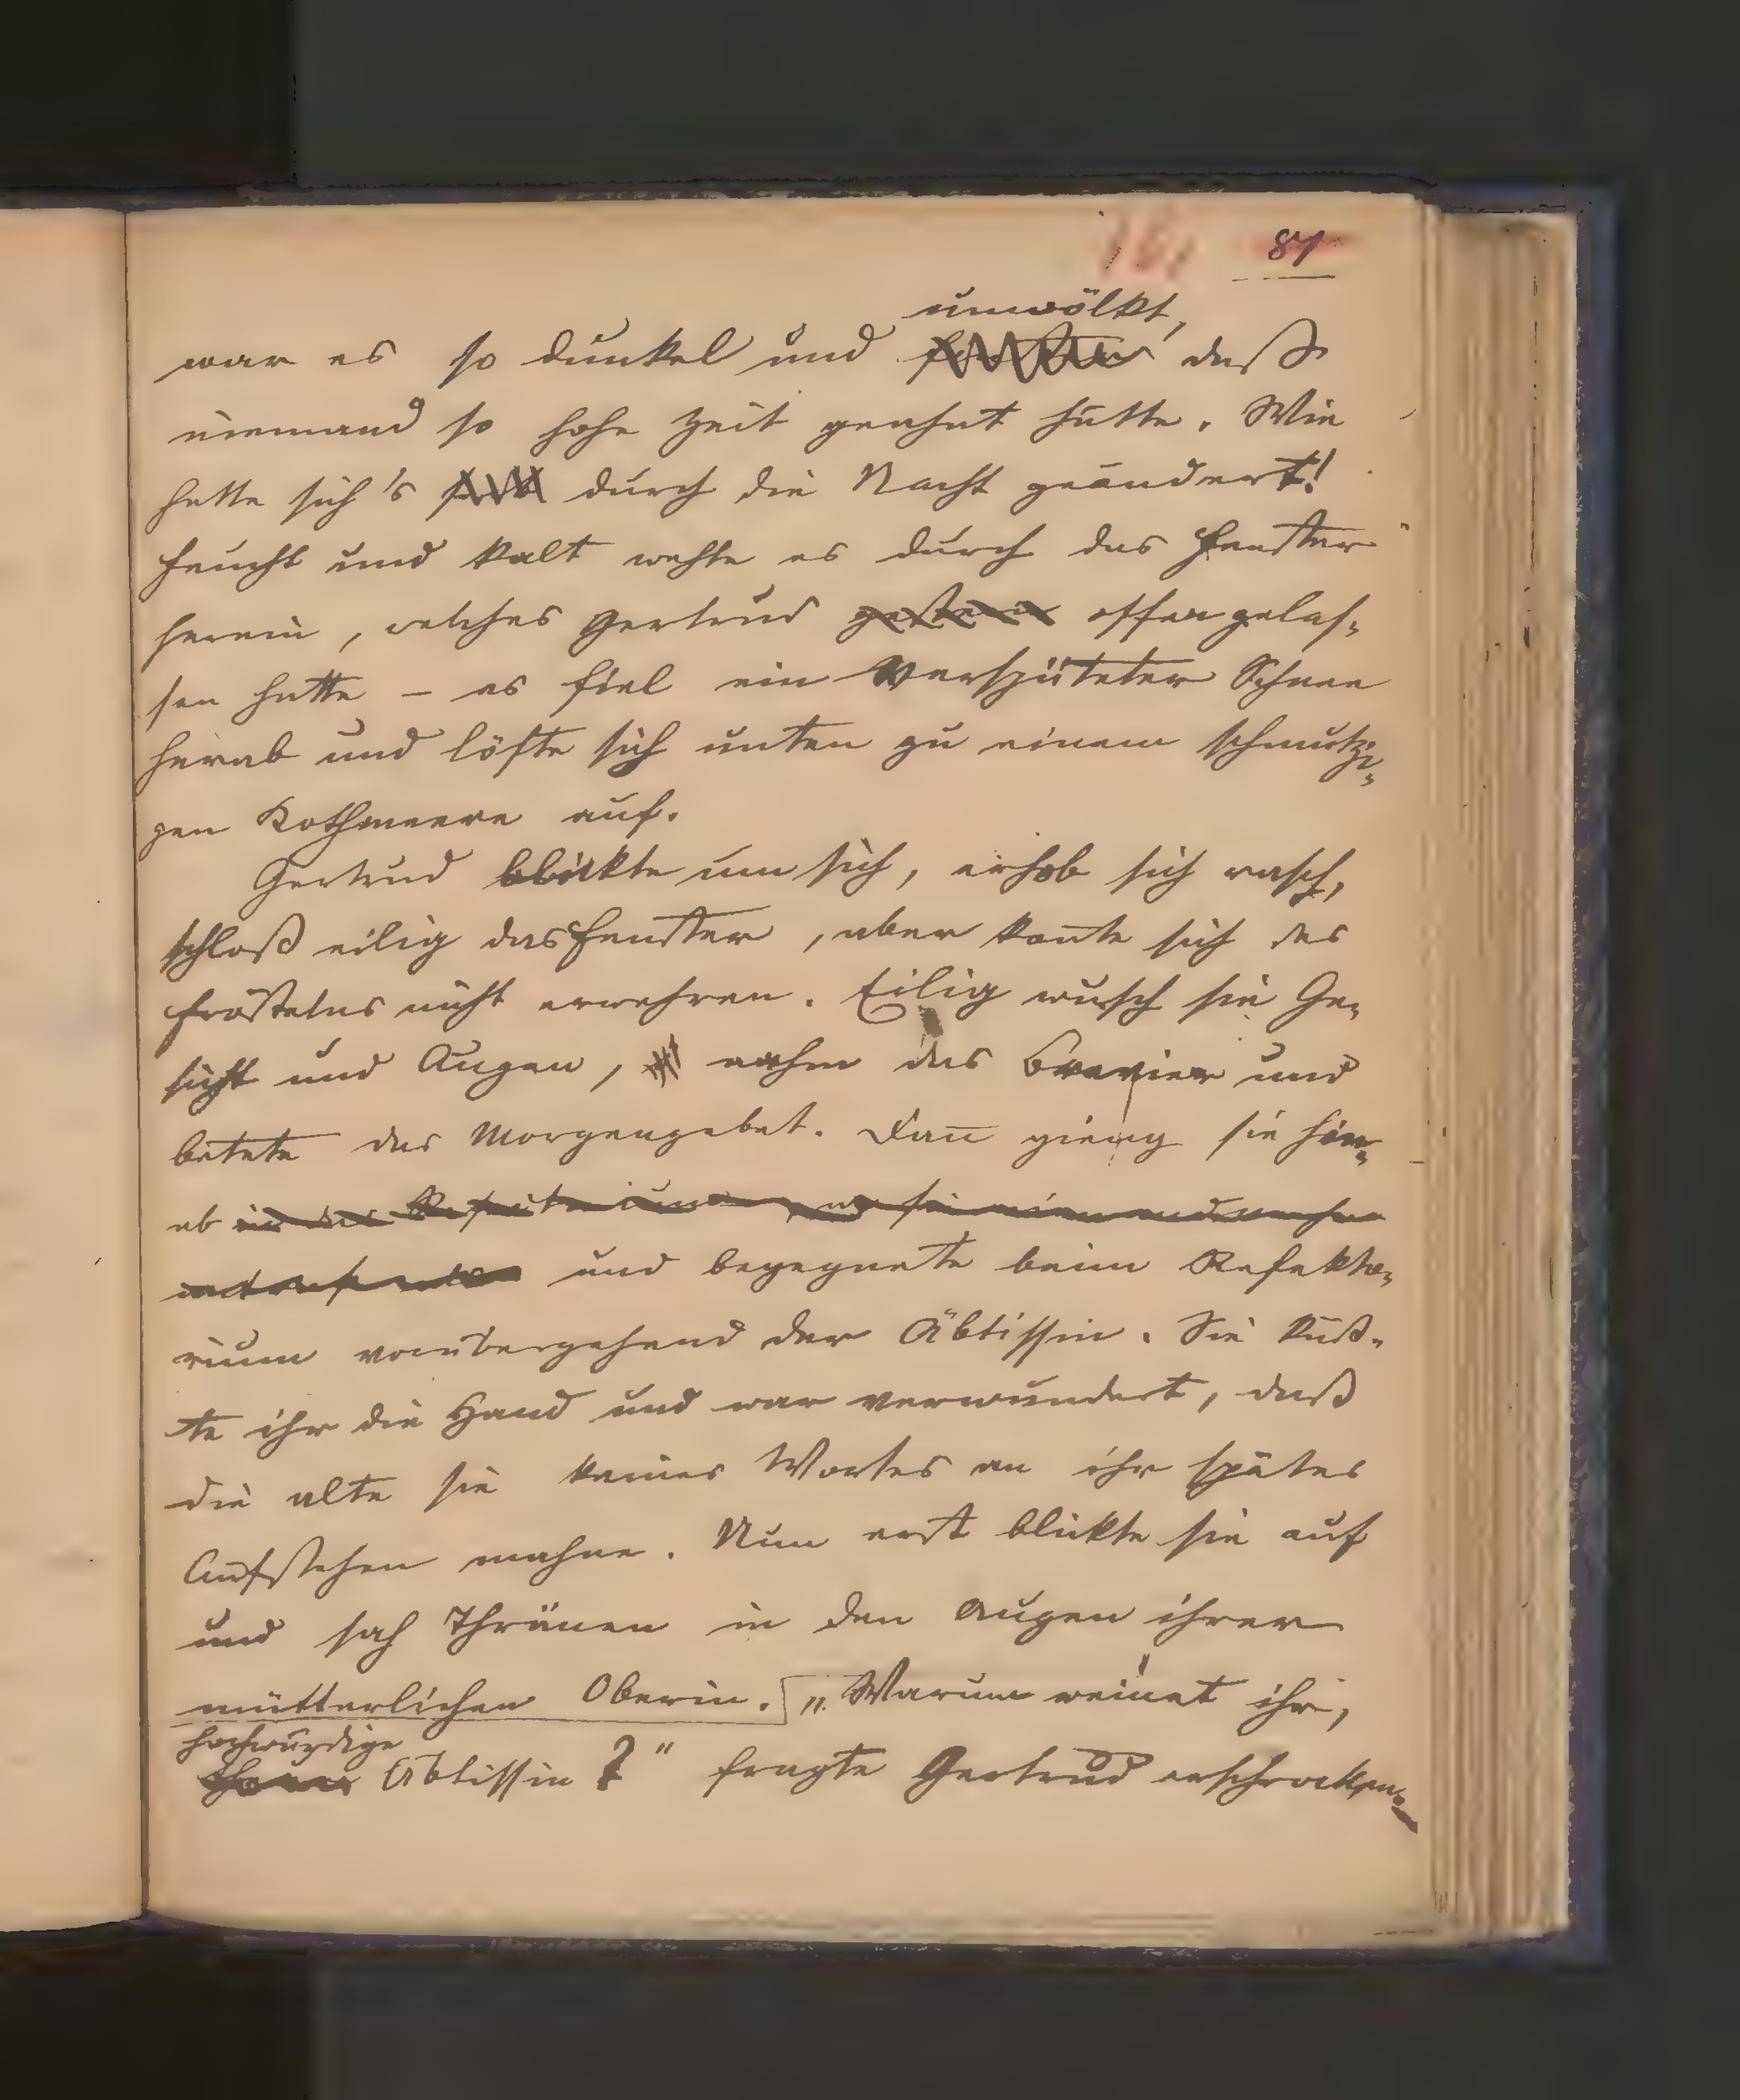 87
umwölkt,
war es so dunkel und daß
niemand so hohe Zeit geahnt hätte. Wie
hatte sich's durch die Nacht geändert!
Feucht und kalt wehte es durch das Fenster
herein, welches Gertrud gestern offen gelas-
sen hatte – es fiel ein verspäteter Schnee
herab und löste sich unten zu einem schmutzi-
gen Kothmeere auf.
Gertrud blickte um sich, erhob sich rasch,
schloß eilig das Fenster, aber kon̄te sich des
Fröstelns nicht erwehren. Eilig wusch sie Ge-
sicht und Augen, nahm das Brevier und
betete das Morgengebet. Dan̄ gieng sie hin-
ab in das Refektorium, wo sie niemand mehr
und begegnete beim Refekto-
rium vorübergehend der Äbtissin. Sie küß-
te ihr die Hand und war verwundert, daß
die alte sie keines Wortes an ihr spätes
Aufstehen mahne. Nun erst blickte sie auf
und sah Thränen in den Augen ihrer
mütterlichen Oberin. „Warum weinet ihr,
hochwürdige
Äbtissin?" fragte Gertrud erschrocken.